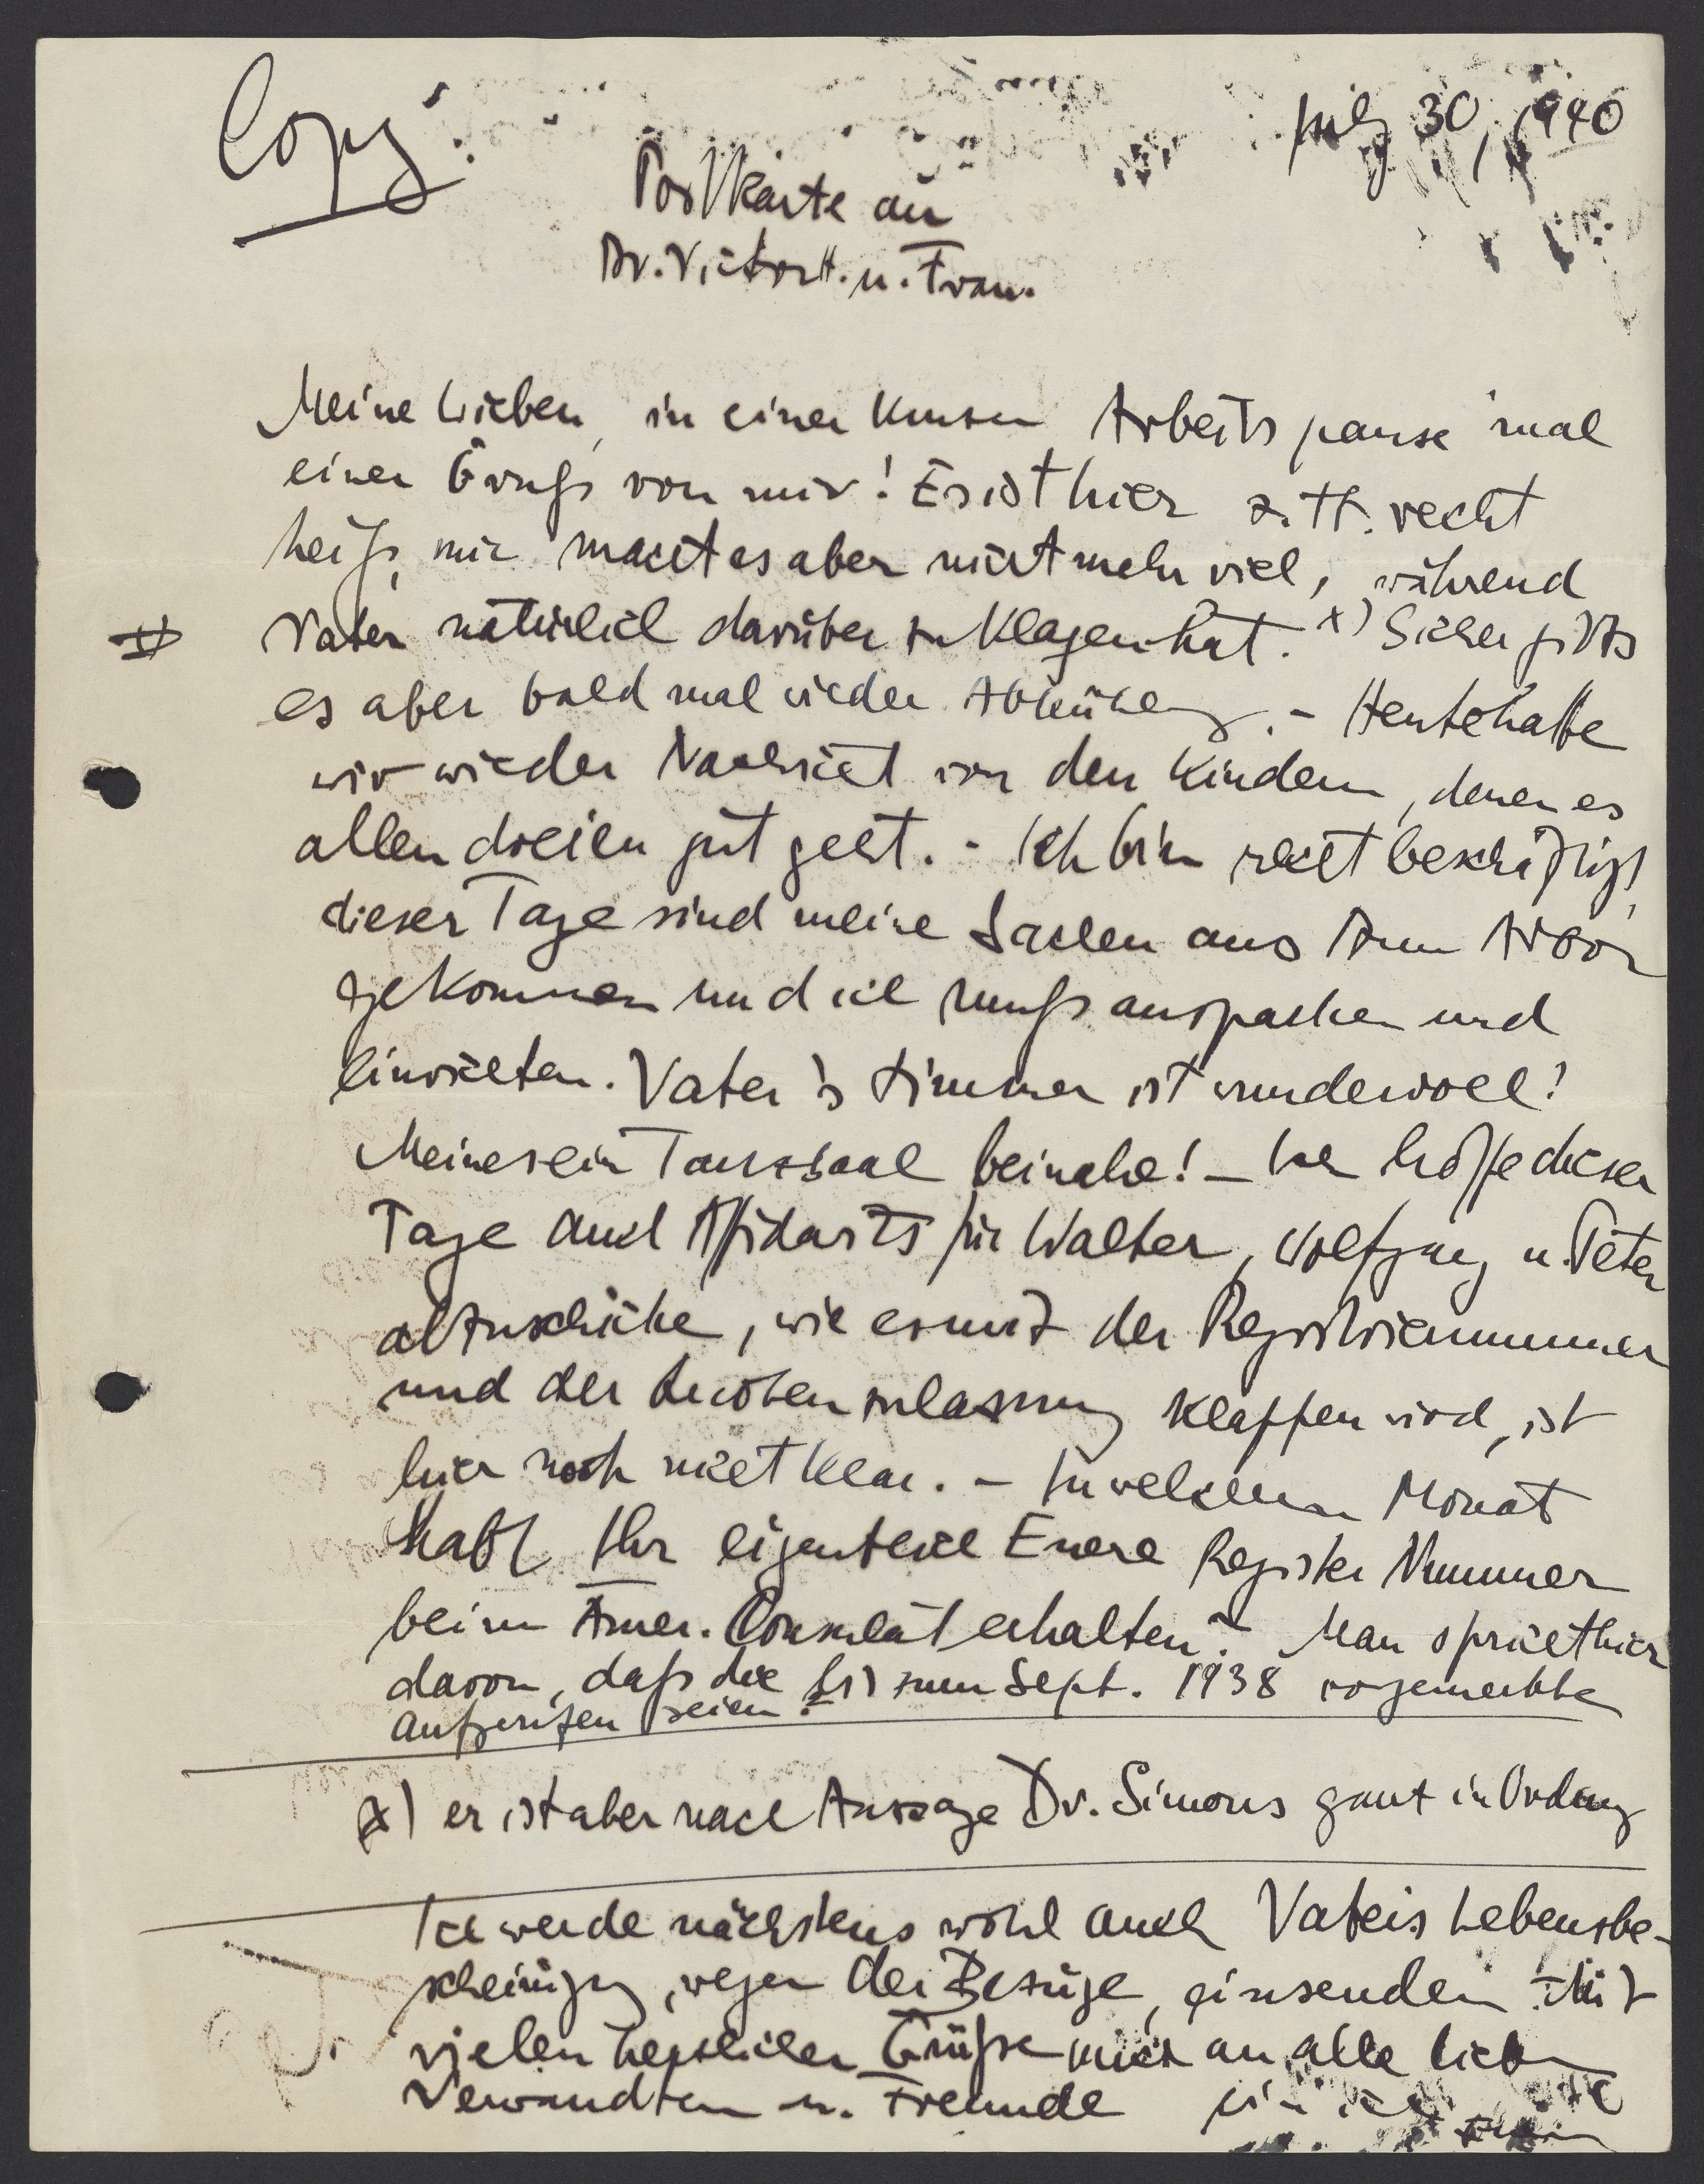 Copy.
July 30, 1940
Postkarte an
Dr. Victor H. u. Frau.
Meine Lieben, in einer kurzen Arbeitspause mal
einen Gruß von mir! Es ist hier z. Zt. recht
heiß, mir macht es aber nicht mehr viel, während
Vater natürlich darüber zu klagen hat. x) Sicher gibts
es aber bald mal wieder Abkühlung. - Heute hatte
wir wieder Nachricht von den Kindern, denen es
allen dreien gut geht. - Ich bin recht beschäftigt,
dieser Tage sind meine Sachen aus Ann Arbor
gekommen und ich muß auspacken und
einrichten. Vater's Zimmer ist wundervoll!
Meines ein Tanzsaal beinahe! - Ich hoffe dieser
Tage auch Affidavits für Walter, Wolfgang u. Peter
abzuschicke, wie es mit der Registriernummer
und der Quotenzulassung klappen wird, ist
hier noch nicht klar. - In welchem Monat
habt Ihr eigentlich Euere Register Nummer
beim Amer. Consulat erhalten? Man spricht hier
davon, daß die bis zum Sept. 1938 vorgemerkte
aufgerufen seien.
x) er ist aber nach Aussage Dr. Simons ganz in Ordnung
Ich werde nächstens wohl auch Vaters Lebensbe-
scheinigung, wegen der Bezüge, einsenden. Mit
vielen herzlichen Grüße auch an alle lieben
Verwandten u. Freunde